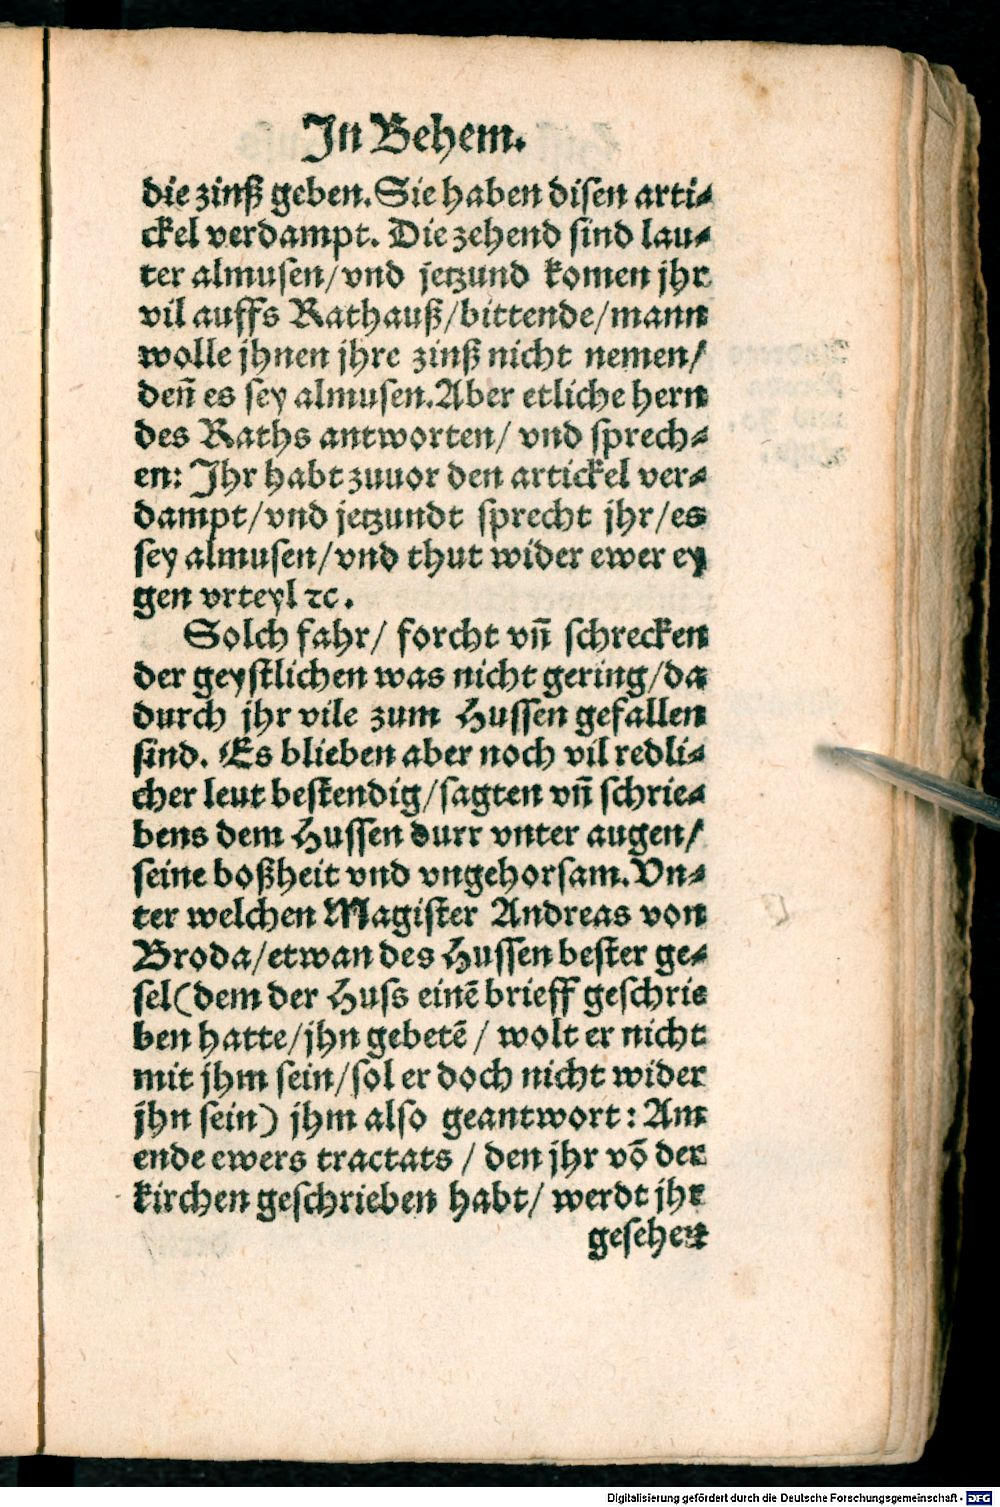 In Behem.
die zinß geben. Sie haben disen arti⸗
ckel verdampt. Die zehend sind lau⸗
ter almusen/vnd jetzund komen jhr
vil auffs Rathauß/bittende/mann
wolle jhnen jhre zinß nicht nemen/
den̄ es sey almusen. Aber etliche hern
des Raths antworten/ vnd sprech⸗
en: Ihr habt zuuor den artickel ver⸗
dampt/vnd jetzundt sprecht jhr/es
sey almusen/vnd thut wider ewer ey
gen vrteyl ꝛc.
Solch fahr/ forcht vn̄ schrecken
der geystlichen was nicht gering/da
durch jhr vile zum Hussen gefallen
sind. Es blieben aber noch vil redli⸗
cher leut bestendig/sagten vn̄ schrie⸗
bens dem Hussen durr vnter augen/
seine boßheit vnd vngehorsam. Vn⸗
ter welchen Magister Andreas von
Broda/etwan des Hussen bester ge⸗
sel(dem der Huss einē brieff geschrie
ben hatte/jhn gebetē/ wolt er nicht
mit jhm sein/sol er doch nicht wider
jhn sein) jhm also geantwort: Am
ende ewers tractats / den jhr vō der
kirchen geschrieben habt/ werdt jhr
gesehen
Digitalisierung gefördert durch die Deutsche Forschungsgemeinschaft - DFG